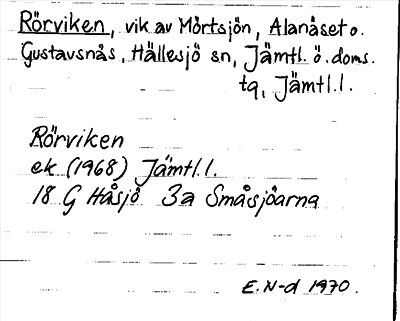 Rörviken, vik av Mörtsjön, Alanäset o.
Gustavsnäs, Hällesjö sn, Jämtl. ö. doms.
tg, Jämtl. l.
Rörviken
ek (1968) Jämtl. l.
18 G Håsjö 3a Småsjöarna
E. N-d 1970.